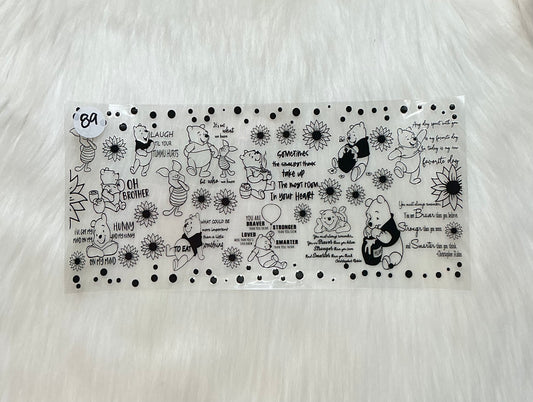 89
LAUGH
'TIL YOUR
TUMMY HURTS
It's not
what
we have
but who we have
OH
BROTHER
I'VE GOT MY
MIND ON MY
HUNNY
AND MY HUNNY
ON MY MIND
TO EAT
WHAT COULD BE
more important
than a little
something
Sometimes
the smallest things
take up
The most room
In your heart
YOU ARE
BRAVER
THAN YOU THINK
STRONGER
THAN YOU SEEM
LOVED
MORE THAN YOU KNOW
SMARTER
THAN YOU THINK
You must always remember
You are Braver than you believe
Stronger than you seem
And Smarter than you think
Christopher Robin
Any day spent with you
is my favorite day
So today is my new
favorite day
You must always remember
You are Braver than you believe,
Stronger than you seem,
and Smarter than you think.
-Christopher Robin